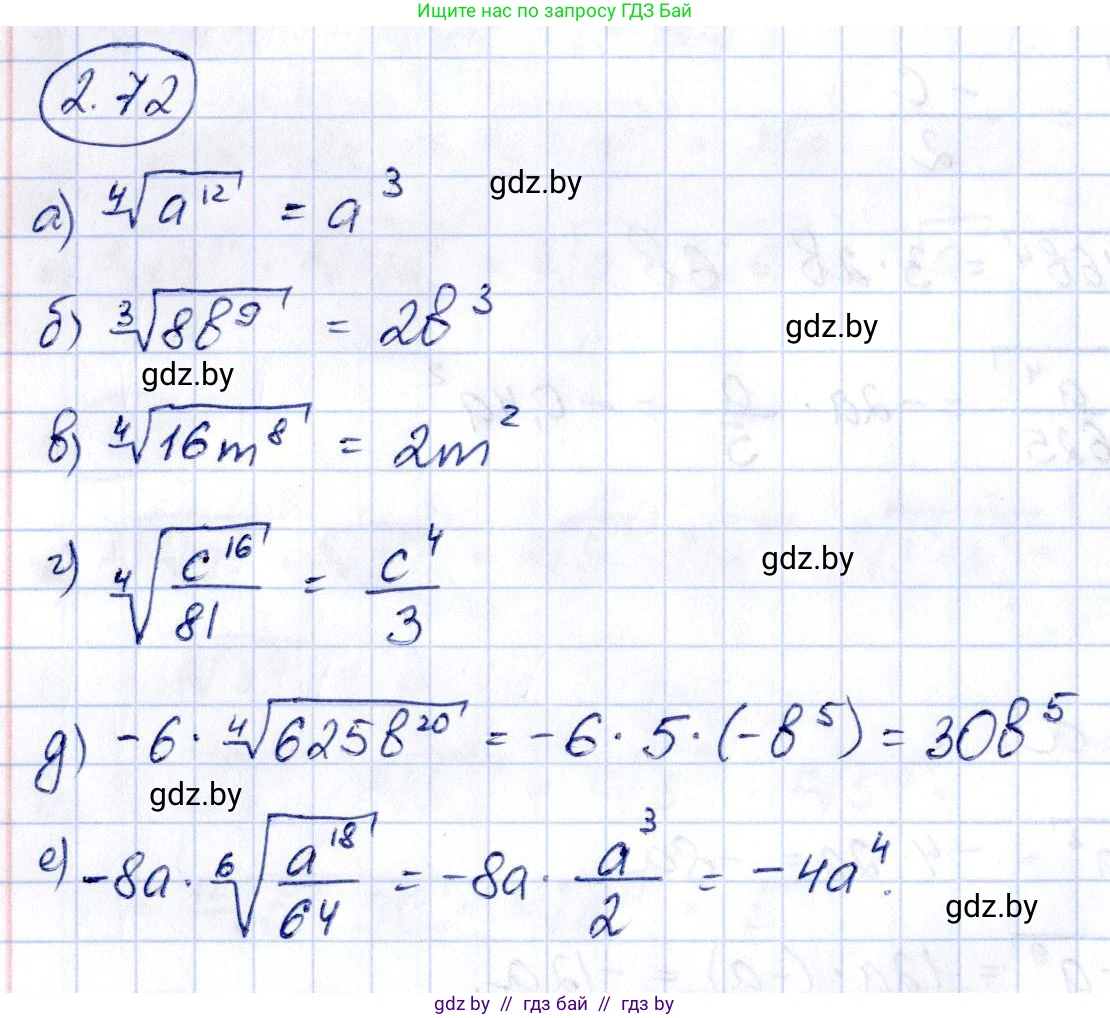 Ищите нас по запросу ГДЗ Бай
2.72
а) ⁴√(a¹²) = a³
gdz.by
б) ³√(8b⁹) = 2b³
gdz.by
gdz.by
в) ⁴√(16m⁸) = 2m²
г) ⁴√(c¹⁶/81) = c⁴/3
gdz.by
д) -6 · ⁴√(625b²⁰) = -6 · 5 · (-b⁵) = 30b⁵
gdz.by
е) -8a · ⁶√(a¹⁸/64) = -8a · a³/2 = -4a⁴.
gdz.by
gdz.by // гдз бай // гдз by